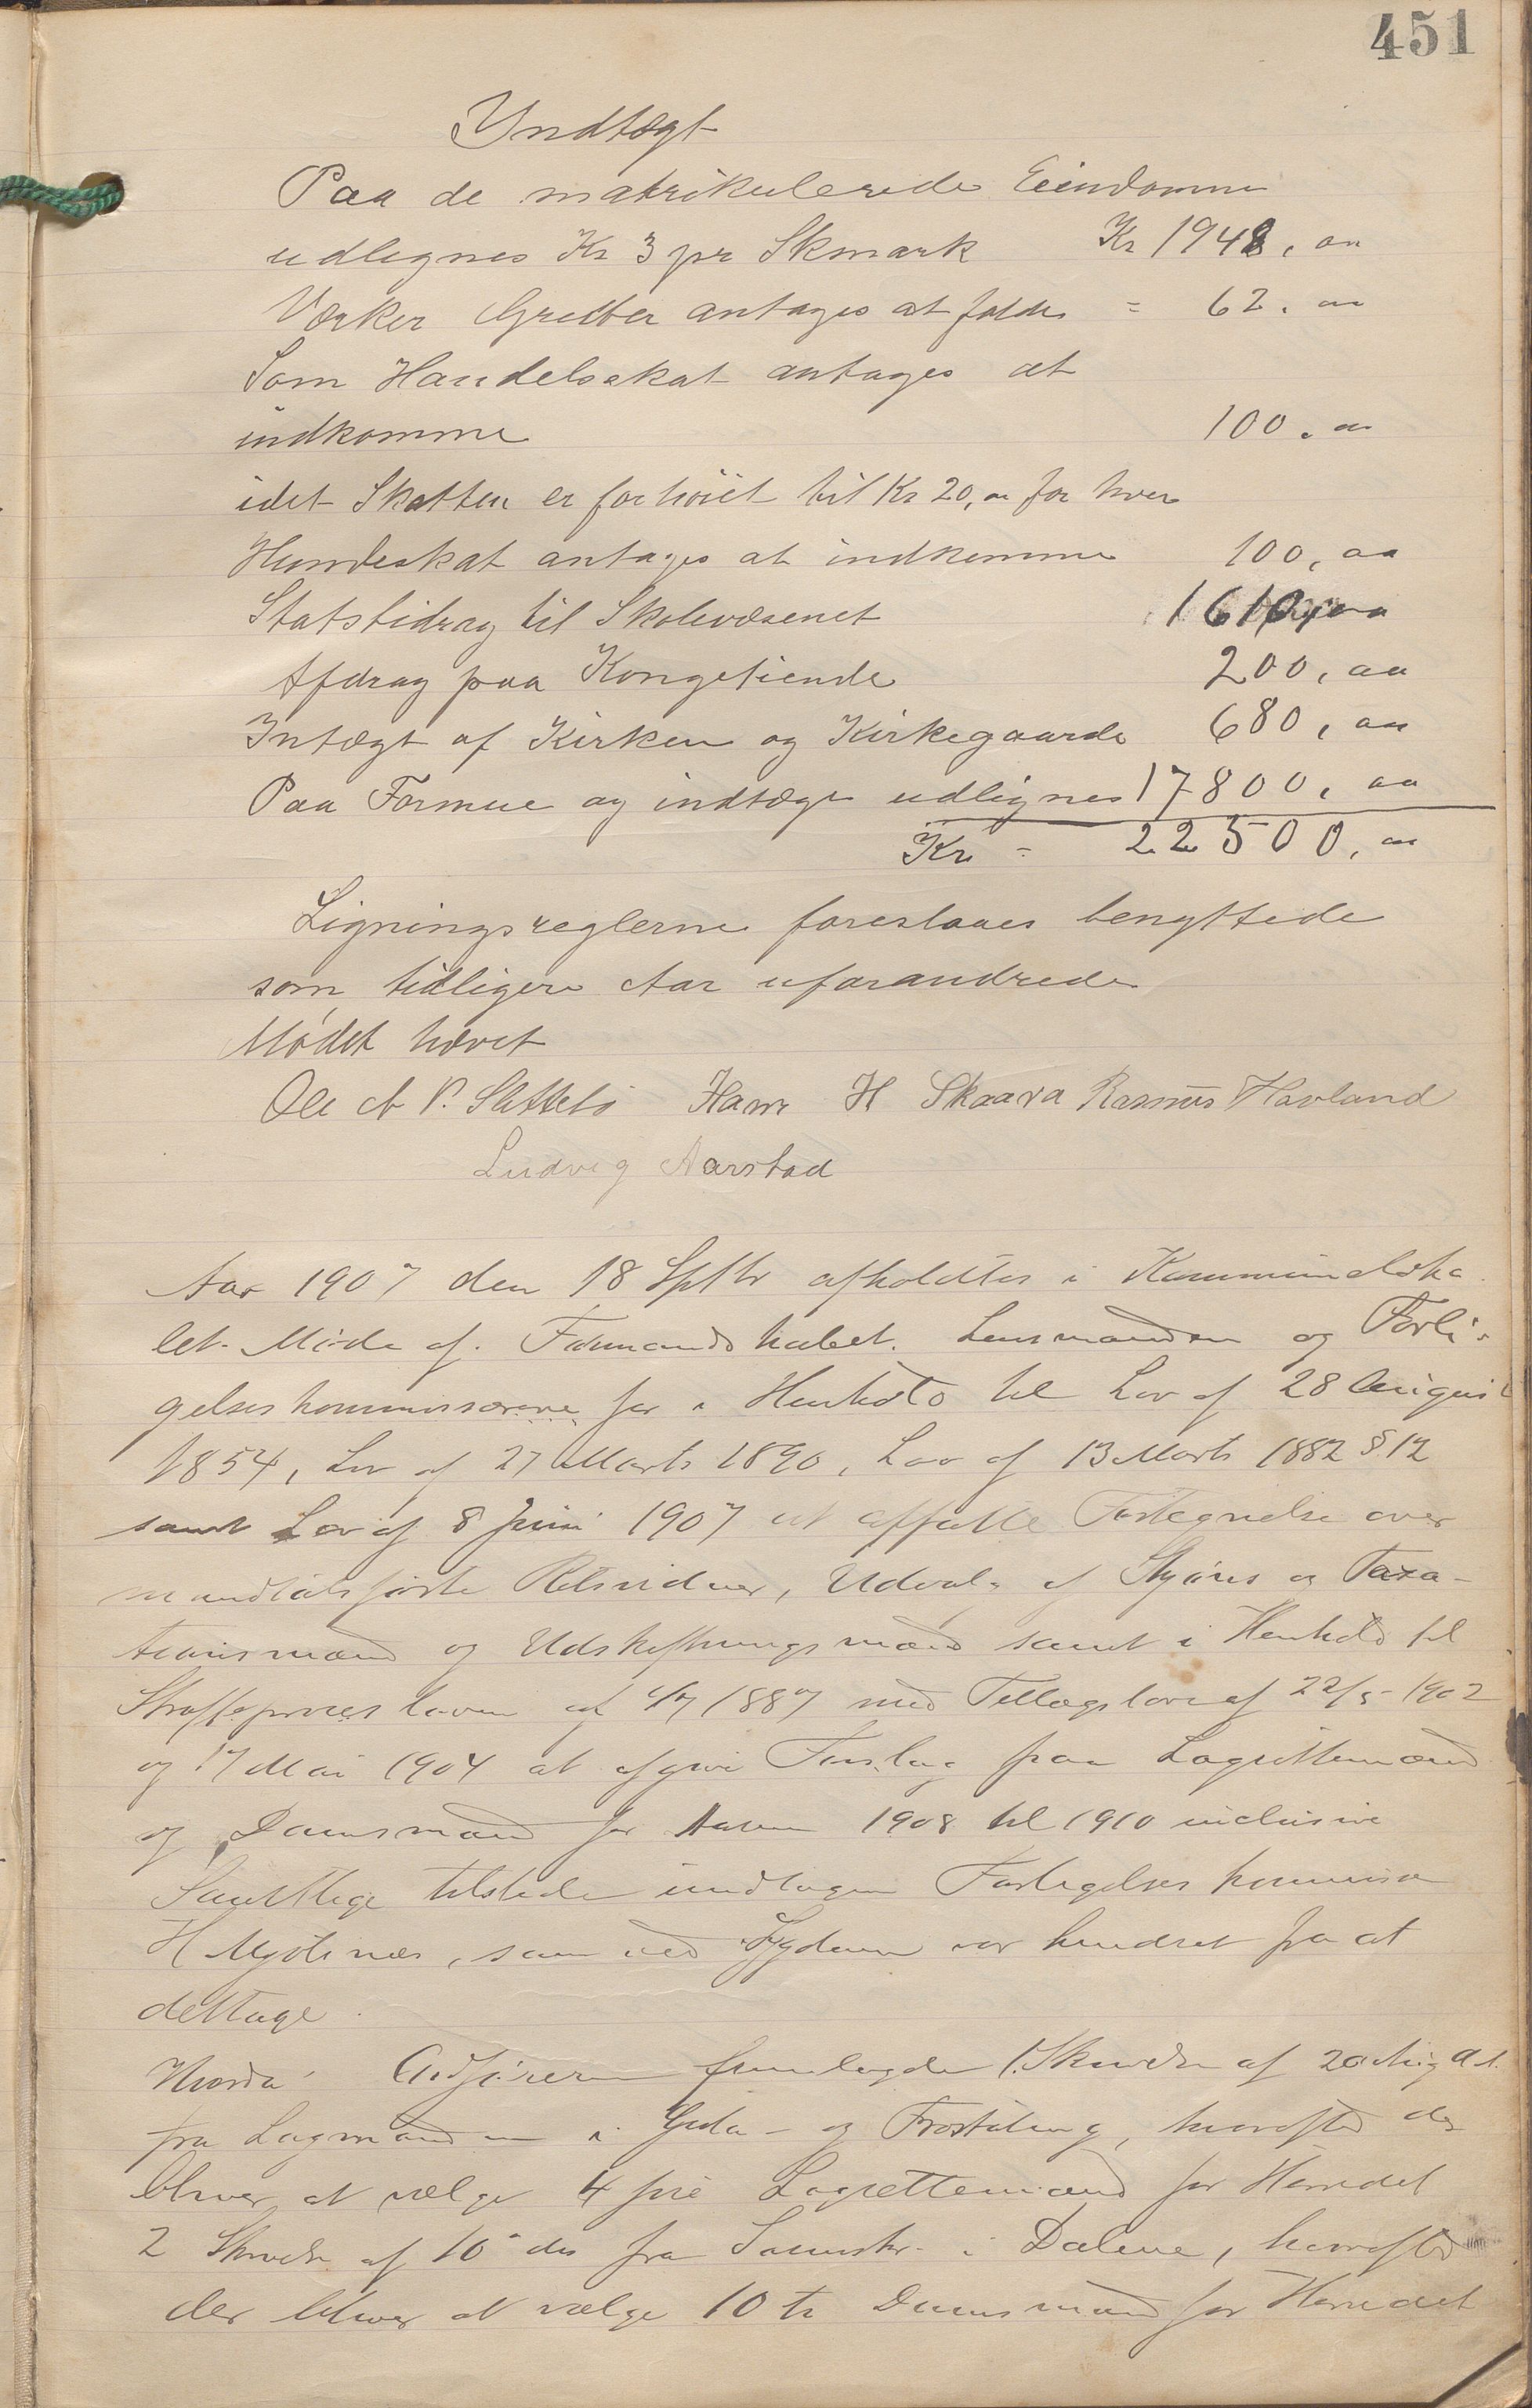 451
Yndtægt
Paa de matrikulerede Eiendomme
udlignes Kr 3 pr Skmark Kr 1948, oo
Værker Gruber antages at
= 62. oo
Som Handelsskat antages at
indkomme 100. oo
idet Skatten er forhöiet til Kr 20, oo for hver
Hundeskat antages at indkomme 100, oo
Statsbidrag til Skolevæsenet 1610, oo
Afdrag paa Kongetiende 200, oo
Intægt af Kirken og Kirkegaarde 680, oo
Paa Formue og indtægt udlignes 17800, oo
Kr = 22500, oo
Ligningsreglerne foreslaaes benyttede
som tidligere Aar uforandrede
Mödet hævet
Ole A P. Slettebö Hans H Skaara Rasmus Havland
Ludvig Aarstad
Aar 1907 den 18 Sptbr afholdtes i Kommuneloka
let Möde af Formandskabet. Lensmanden og Forli-
gelseskommissærene for i Henhold til Lov af 28 August
1854, Lov af 27 Marts 1890, Lov af 13 Marts 1882 § 12
samt Lov af 8 Juni 1907 at affatte Fortegnelse over
mandtalsförte Retsvidner, Udvalg af Skjöns og Taxa-
tionsmænd og Udskiftningsmænd samt i Henhold til
Straffeprocesloven af 1/7 1887 med Tillægslove af 22/5 1902
og 17 Mai 1904 at afgive Forslag paa Lagrettemænd
og Domsmænd for Aarene 1908 til 1910 inclusive
Samtlige tilstede undtagen Forligelseskommissær
H , som ved Sygdom var hindret fra at
deltage.
Hvorda Ordföreren fremlagde 1. Skrivelse af 20 Aug d. A.
fra Lagmanden i Gula- og Frostating, hvorefter der
bliver at vælge 4 fire Lagrettemænd for Herredet
2 Skrivelse af 10 ds fra Sorenskr. i Dalene, hvorefter
der bliver at vælge 10 ti Domsmænd for Herredet